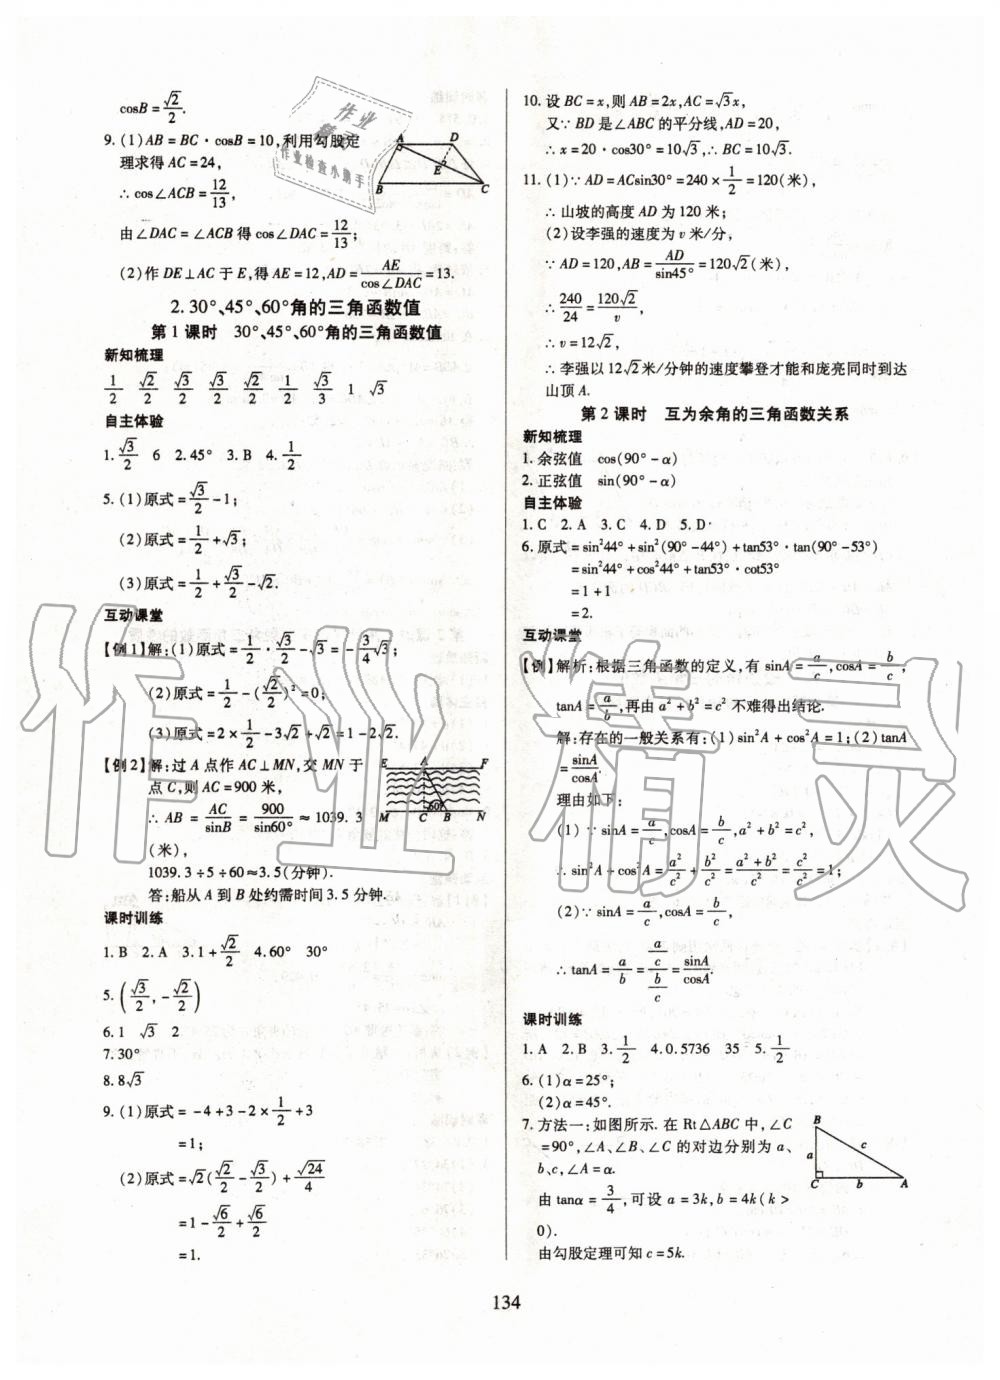 cosB=√2/2.
9.(1)AB=BC·cosB=10,利用勾股定
理求得AC=24,
∴cos∠ACB=12/13,
由∠DAC=∠ACB得cos∠DAC=12/13;
(2)作DE⊥AC于E,得AE=12,AD=AE/cos∠DAC=13.
2.30°、45°、60°角的三角函数值
第1课时 30°、45°、60°角的三角函数值
新知梳理
1/2 √2/2 √3/2 √3/2 √2/2 1/2 √3/3 1 √3
自主体验
1.√3/2 6 2.45° 3.B 4.1/2
5.(1)原式=√3/2-1;
(2)原式=1/2+√3;
(3)原式=1/2+√3/2-√2.
互动课堂
【例1】解:(1)原式=1/2·√3/2-√3=-3/4√3;
(2)原式=1/2-(√2/2)²=0;
(3)原式=2×1/2-3√2+√2=1-2√2.
【例2】解:过A点作AC⊥MN,交MN于
点C,则AC=900米,
∴AB=AC/sinB=900/sin60°≈1039.3
(米),
1039.3÷5÷60≈3.5(分钟).
答:船从A到B处约需时间3.5分钟.
课时训练
1.B 2.A 3.1+√2/2 4.60° 30°
5.(√3/2,-√2/2)
6.1 √3 2
7.30°
8.8√3
9.(1)原式=-4+3-2×1/2+3
=1;
(2)原式=√2(√2/2-√3/2)+√24/4
=1-√6/2+√6/2
=1.
A D
E
B C
E A F
60°
M C B N
10.设BC=x,则AB=2x,AC=√3x,
又∵BD是∠ABC的平分线,AD=20,
∴x=20·cos30°=10√3,∴BC=10√3.
11.(1)∵AD=ACsin30°=240×1/2=120(米),
∴山坡的高度AD为120米;
(2)设李强的速度为v米/分,
∵AD=120,AB=AD/sin45°=120√2(米),
∴240/24=120√2/v,
∴v=12√2,
∴李强以12√2米/分钟的速度攀登才能和庞亮同时到达
山顶A.
第2课时 互为余角的三角函数关系
新知梳理
1.余弦值 cos(90°-α)
2.正弦值 sin(90°-α)
自主体验
1.C 2.A 3.C 4.D 5.D
6.原式=sin²44°+sin²(90°-44°)+tan53°·tan(90°-53°)
=sin²44°+cos²44°+tan53°·cot53°
=1+1
=2.
互动课堂
【例】解析:根据三角函数的定义,有sinA=a/c,cosA=b/c,
tanA=a/b,再由a²+b²=c²不难得出结论.
解:存在的一般关系有:(1)sin²A+cos²A=1;(2)tanA
=sinA/cosA.
理由如下:
(1)∵sinA=a/c,cosA=b/c,a²+b²=c²,
∴sin²A+cos²A=a²/c²+b²/c²=a²+b²/c²=c²/c²=1;
(2)∵sinA=a/c,cosA=b/c,
∴tanA=a/b=(a/c)/(b/c)=sinA/cosA.
课时训练
1.A 2.B 3.1/2 4.0.5736 35 5.1/2
6.(1)α=25°;
(2)α=45°.
7.方法一:如图所示.在Rt△ABC中,∠C
=90°,∠A、∠B、∠C的对边分别为a、
b、c,∠A=α.
由tanα=3/4,可设a=3k,b=4k(k>
0).
由勾股定理可知c=5k.
B
a c
C b A
134
作业精灵
作业
精灵
作业检查小助手